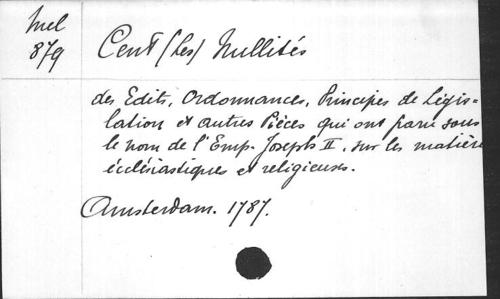 Mel
879
Cent (Les) Nullités
des Edits, Ordonnances, Principes de Légis=
lation et autres Pièces qui ont paru sous
le nom de l'Emp. Joseph II. sur les matière
écclésiastiques et religieuses.
Amsterdam. 1787.